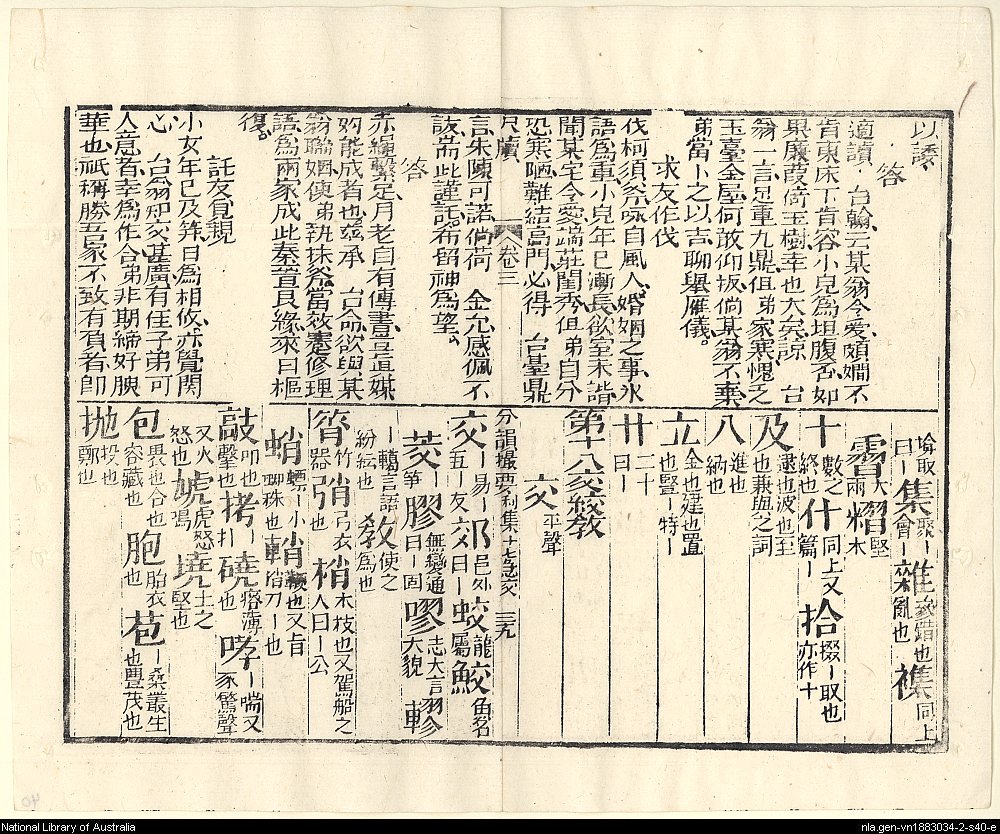 以諉
答
適讀 台翰云某翁令愛頗嫻不
肯東床下肯容小兒為坦腹否如
果廉葭倚玉樹幸也大哀諒 台
翁一言足重九鼎但弟家寒愧乏
玉臺金屋何敢仰扳倘某翁不棄
弟當卜之以吉聊舉雁儀。
求友作伐
伐柯須斧咏自風人婚姻之事氷
語為重小兒年已漸長欲室未諧
聞某宅令愛端莊閨秀但弟自分
恐寒陋難結高門必得 台臺鼎
尺牘 卷三
言朱陳可諾倘荷 金允感佩不
該耑此謹託布留神為望。
答
赤繩繫足月老自有傳書豈真媒
妁能成者也茲承 台命欲與某
翁聯姻使弟執抹斧當效蹇修理
語為兩家成此秦晉良緣來日樞
復。
託友覓親
小女年已及笄日為相攸亦覺関
心 台翁知交甚廣有佳子弟可
人意者幸為作合弟非期締好腴
華也祇稱勝吾家不致有負者即
喻取曰一集聚一會一雜參錯也襍同上
霫大雨熠堅木
十數之終也什同上又篇一拾掇一取也亦作十
及逮也波也至也兼與之詞
八進也納也
立金也建也置也豎一特一
廿二十曰一
第十八交絞教
交平聲
分韻撮要利集十七急交 三九
交一易一五一友郊邑外曰一蛟龍屬鮫角名
茭一筍膠無變通曰一固嘐志大言大貌
一轕言語紛紜也教使之為也
筲竹器弰弓衣也梢木枝也又駕船之人曰一公
蛸螵一小蜘蛛也鞘鞭也又音刀一也
敲叩也擊也拷一打磽瘠薄也哮一喘又豕驚聲
又火怒也虓虎怒鳴墝土之堅也
包畏也合也容藏也胞胎衣也苞一桑叢生也豐茂也
拋投也鄭也
National Library of Australia
nla.gen-vn1883034-2-s40-e